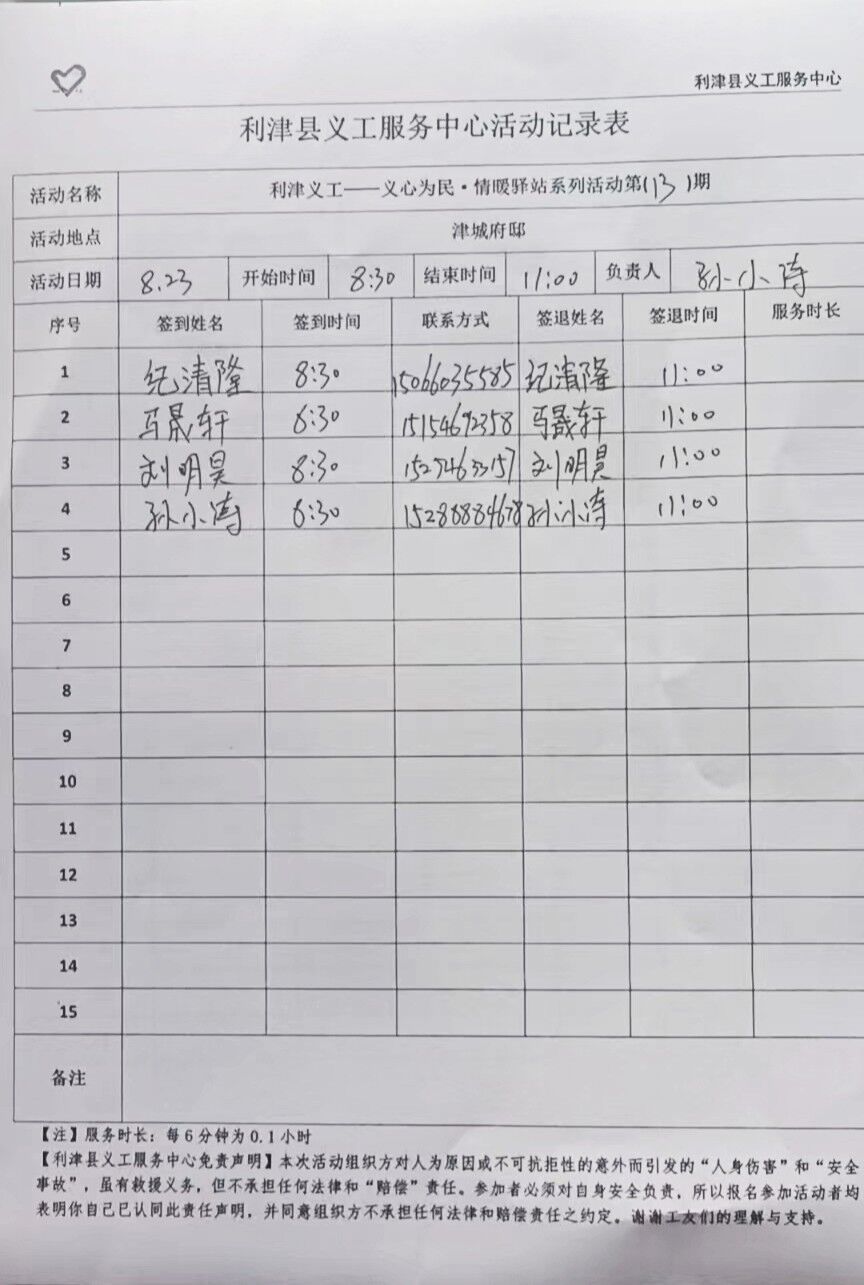 利津县义工服务中心
利津县义工服务中心活动记录表
活动名称 利津义工——义心为民·情暖驿站系列活动第(13)期
活动地点 津城府邸
活动日期 8.23 开始时间 8:30 结束时间 11:00 负责人 孙小涛
序号 签到姓名 签到时间 联系方式 签退姓名 签退时间 服务时长
1 纪清隆 8:30 15066035585 纪清隆 11:00
2 马晟轩 8:30 15154692358 马晟轩 11:00
3 刘明昊 8:30 刘明昊 11:00
4 孙小涛 8:30 15288884678 孙小涛 11:00
5
6
7
8
9
10
11
12
13
14
15
备注
【注】服务时长：每6分钟为0.1小时
【利津县义工服务中心免责声明】本次活动组织方对人为原因或不可抗拒性的意外而引发的“人身伤害”和“安全
事故”，虽有救援义务，但不承担任何法律和“赔偿”责任。参加者必须对自身安全负责，所以报名参加活动者均
表明你自己已认同此责任声明，并同意组织方不承担任何法律和赔偿责任之约定。谢谢工友们的理解与支持。